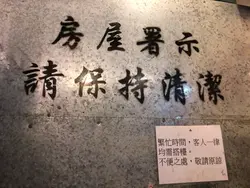 房屋署示
請保持清潔
繁忙時間，客人一律
均需搭檯。
不便之處，敬請原諒